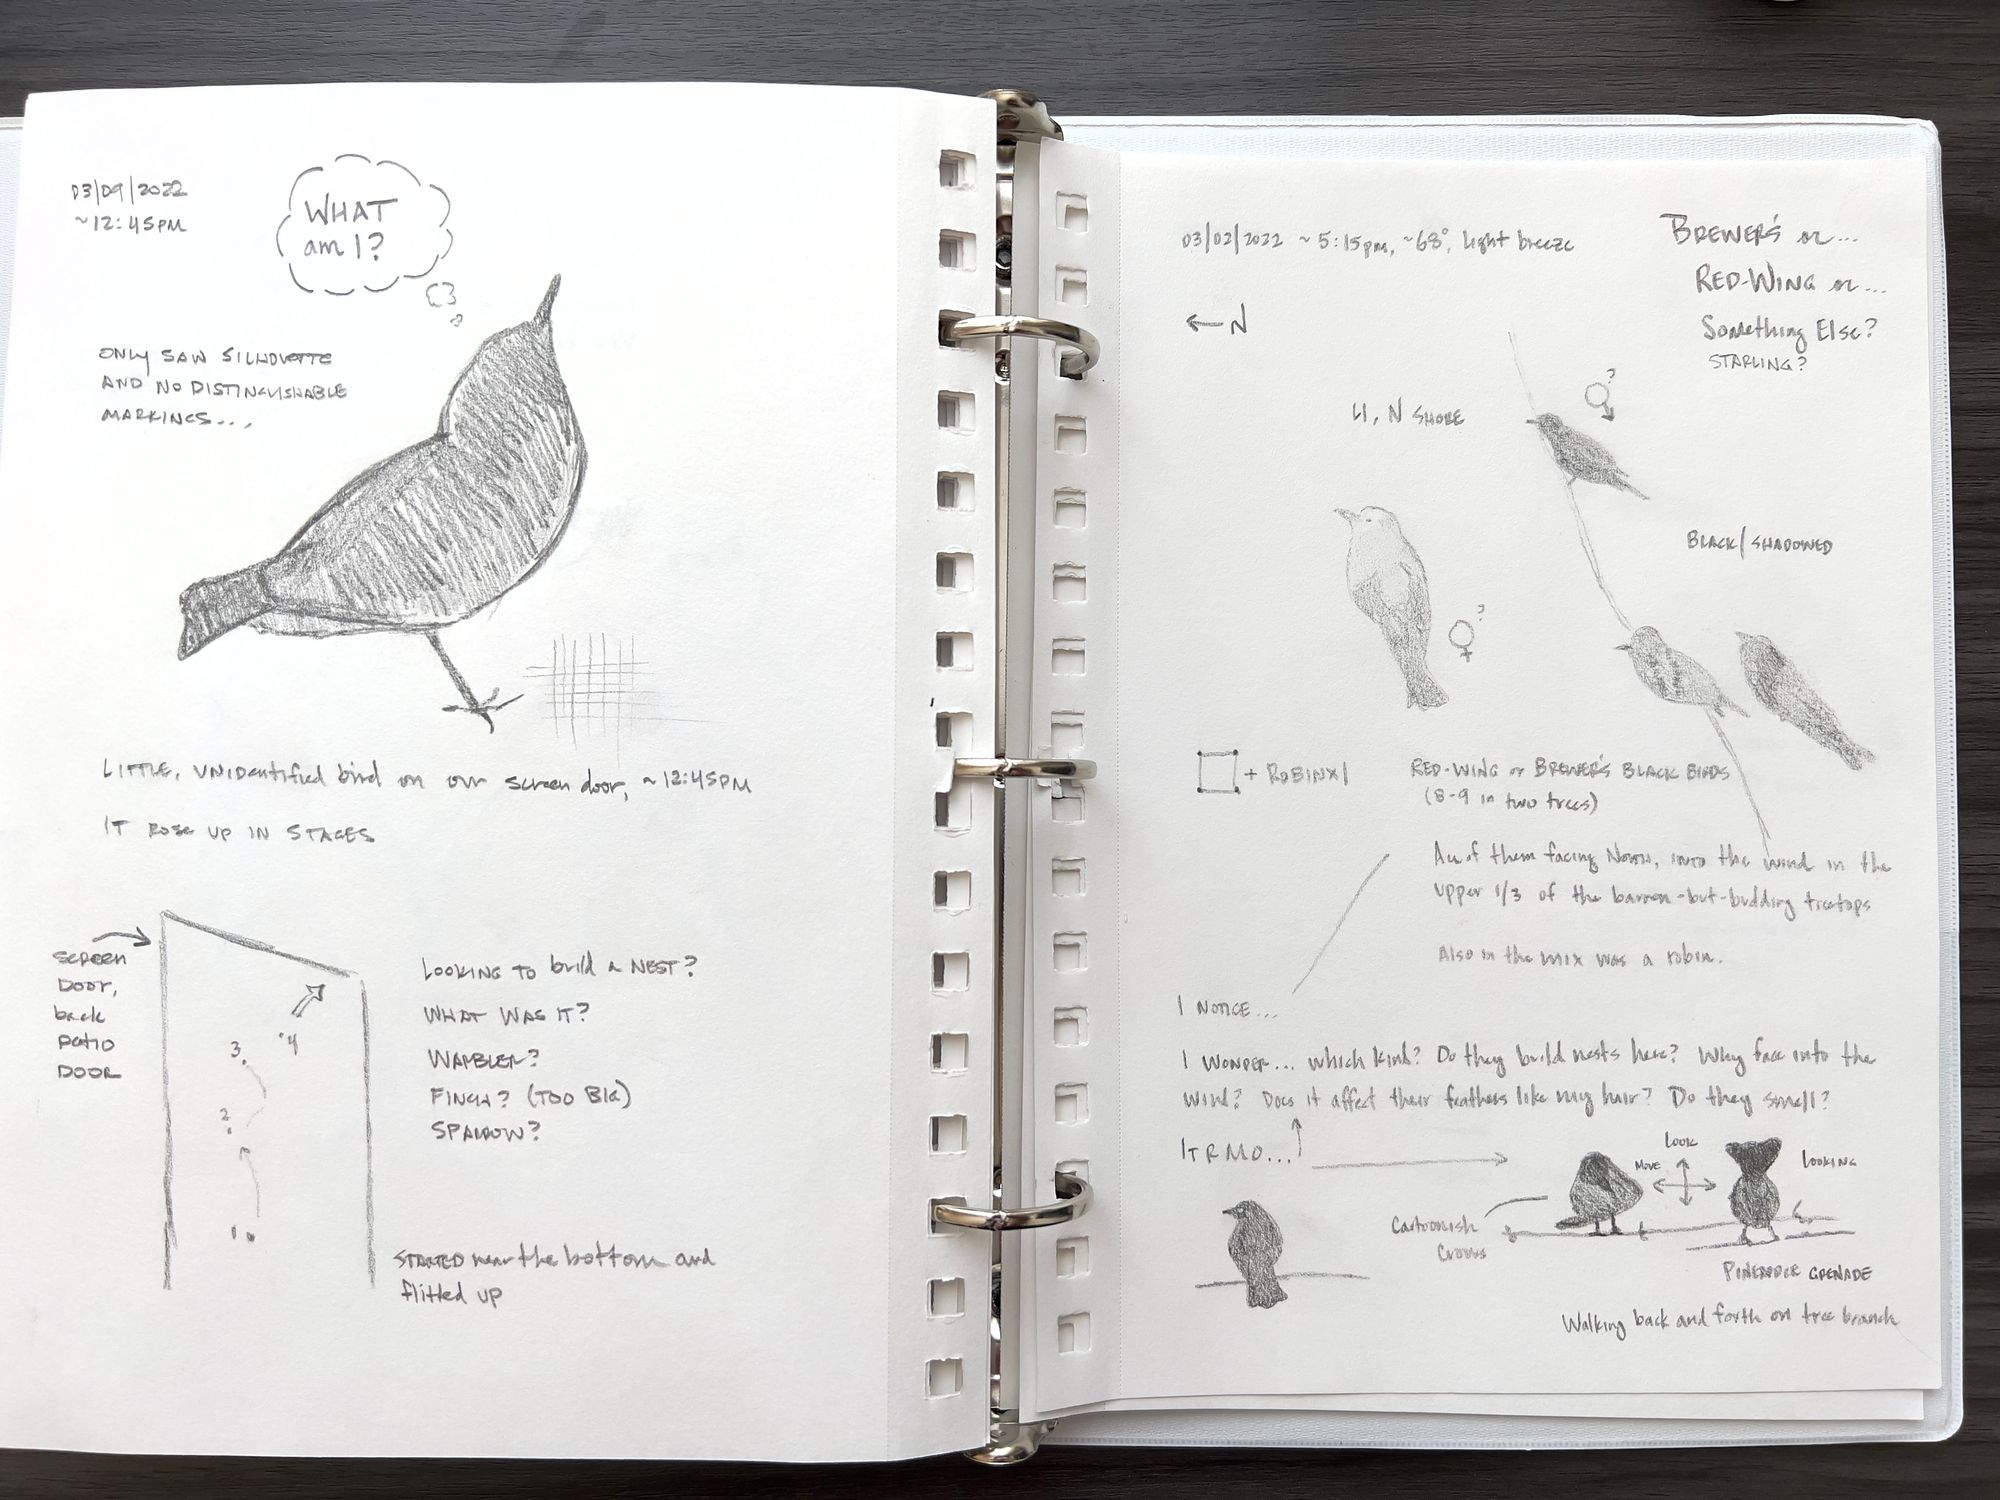 03/09/2022
~12:45PM
WHAT
am I?
ONLY SAW SILHOVETTE
AND NO DISTINGUISHABLE
MARKINGS...
LITTLE, UNIDentified bird on our screen door, ~12:45PM
IT ROSE UP IN STAGES
SCREEN
DOOR,
back
Patio
DOOR
3.
.4
2.
1.
LOOKING TO build a NEST?
WHAT WAS IT?
WARBLER?
FINCH? (TOO BIG)
SPARROW?
STARTED near the bottom and
flitted up
03/02/2022 ~5:15pm, ~68°, light breeze
BREWER'S or...
RED-WING or...
Something Else?
STARLING?
← N
LI, N SHORE
♂?
BLACK/SHADOWED
♀?
+ ROBINX1
RED-WING or BREWER'S BLACK BIRDS
(8-9 in two trees)
All of them facing North, into the wind in the
upper 1/3 of the barren-but-budding treetops
Also in the mix was a robin.
I NOTICE...
I WONDER... which kind? Do they build nests here? Why face into the
wind? Does it affect their feathers like my hair? Do they smell?
ITRMO...
LOOK
MOVE
LOOKING
Cartoonish
Crows
PINEAPPLE GRENADE
Walking back and forth on tree branch